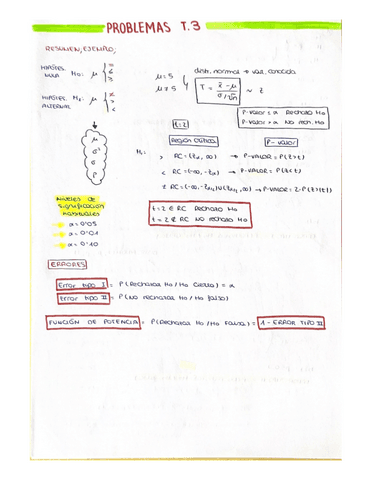 PROBLEMAS T.3
RESUMEN, EJEMPLO;
HIPÓTESIS NULA H₀: μ { = ≤ ≥
HIPÓTESIS ALTERNAT. H₁: μ { ≠ > <
μ=5
μ≠5
distr. normal → var. conocida
T = x̄ - μ / σ/√n ~ Z
P-valor < α Rechazo H₀
P-valor > α No rech. H₀
t=2
Región crítica
P-valor
H₁:
> RC = (Zα, ∞) → P-VALOR = P(Z>t)
< RC = (-∞, -Zα) → P-VALOR = P(Z<t)
≠ RC = (-∞, -Zα/2) U (Zα/2, ∞) → P-VALOR = 2·P(Z>|t|)
μ
σ²
σ
P
t=2 ∈ RC Rechazo H₀
t=2 ∉ RC No rechazo H₀
Niveles de significación habituales
→ α=0'05
→ α=0'01
→ α=0'10
ERRORES
Error tipo I = P(Rechazar H₀ / H₀ Cierta) = α
Error tipo II = P(No rechazar H₀ / H₀ falsa)
FUNCIÓN DE POTENCIA = P(Rechazar H₀ / H₀ Falsa) = 1 - ERROR TIPO II